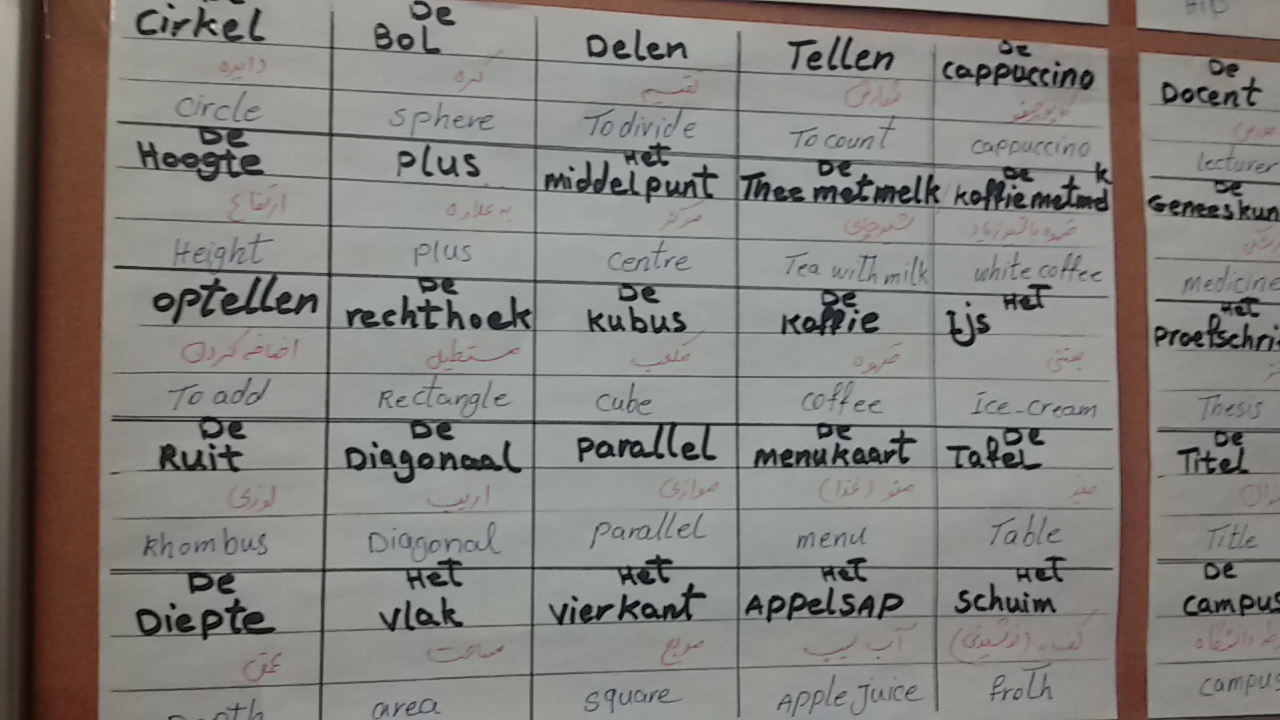 HIP
De
Cirkel Bol Delen Tellen De cappuccino De Docent
دایره کره تقسیم شمارش کاپوچینو
circle sphere To divide To count cappuccino lecturer
De Hoogte plus Het middelpunt De Thee met melk De koffie met melk De Geneeskun
ارتفاع به علاوه مرکز شیرچای قهوه با شیر زیاد
Height plus centre Tea with milk white coffee medicine
optellen De rechthoek De kubus De koffie Het Ijs Het proefschri
اضافه کردن مستطیل مکعب قهوه بستنی
To add Rectangle cube coffee Ice-cream Thesis
De Ruit De Diagonaal parallel De menukaart De Tafel De Titel
لوزی اریب موازی منو (غذا) میز
Rhombus Diagonal parallel menu Table Title
De Diepte Het vlak Het vierkant Het Appelsap Het schuim De campus
عمق مساحت مربع آب سیب کف (نوشیدنی)
Depth area square Apple juice froth campus